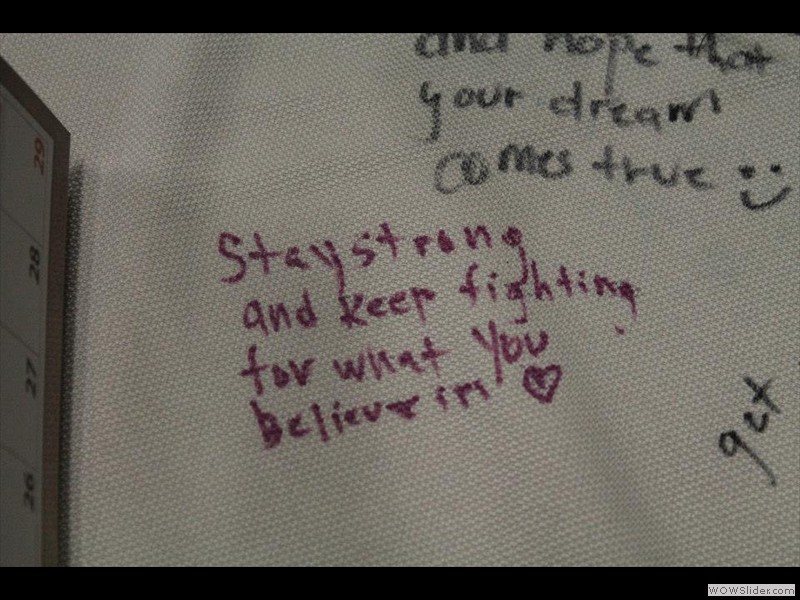 and hope that
your dream
comes true
Stay strong
and keep fighting
for what you
believe in
get
29
28
27
26
WOWSlider.com